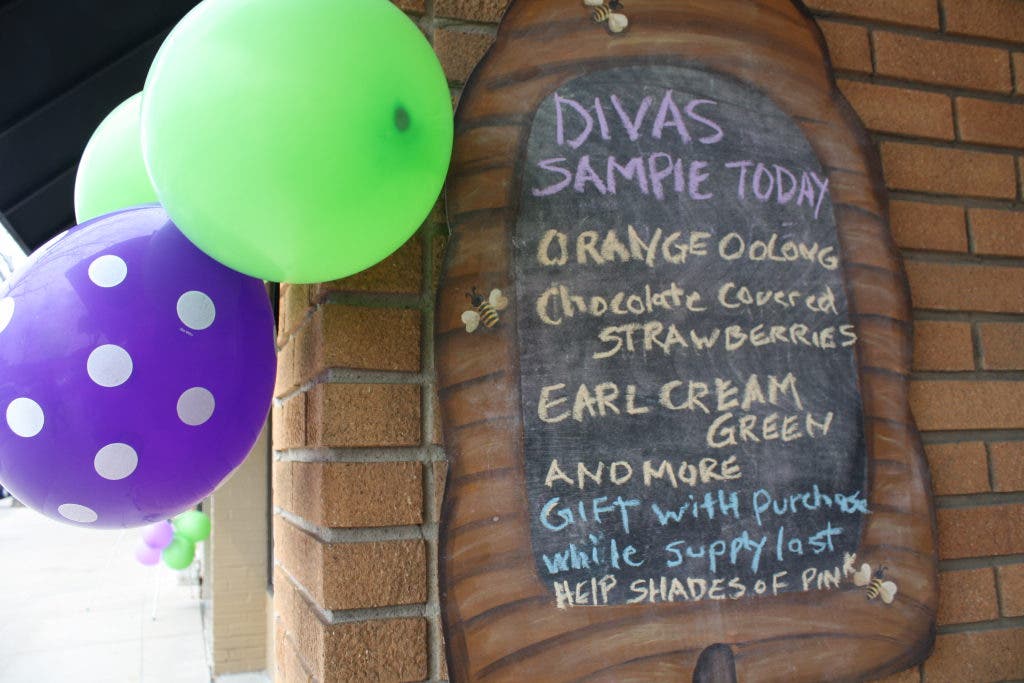 DIVAS
SAMPIE TODAY
ORANGE OOLONG
Chocolate Covered
STRAWBERRIES
EARL CREAM
GREEN
AND MORE
GIFT with purchase
while supply last
HELP SHADES OF PINK